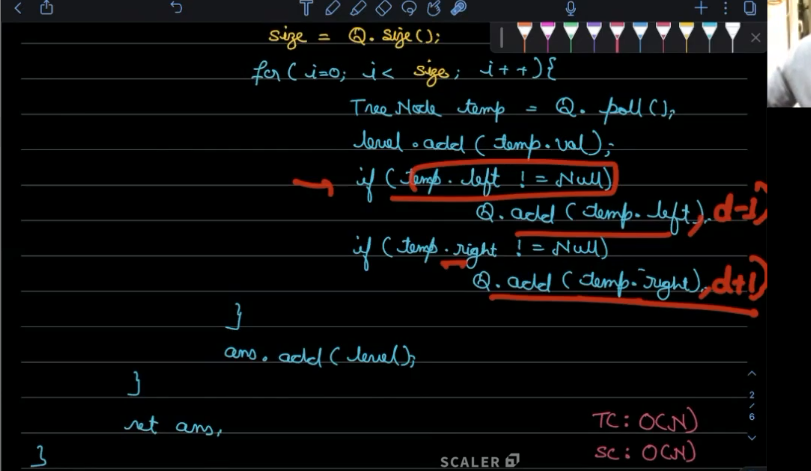 size = Q.size();
for(i=0; i< size; i++){
TreeNode temp = Q.poll();
level.add(temp.val);
if (temp.left != Null)
Q.add(temp.left), d-1)
if (temp.right != Null)
Q.add(temp.right), d+1)
}
ans.add(level);
}
ret ans,
}
TC: O(N)
SC: O(N)
2
/
6
SCALER